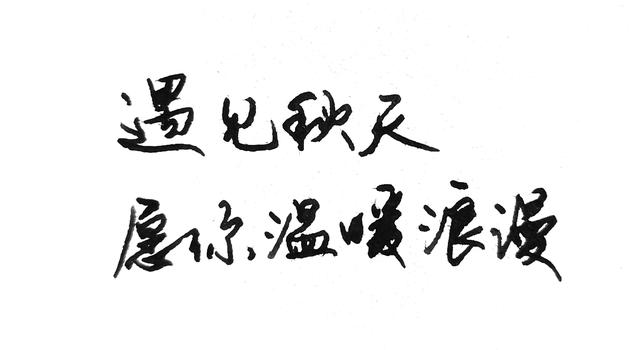 遇见秋天
愿你温暖浪漫